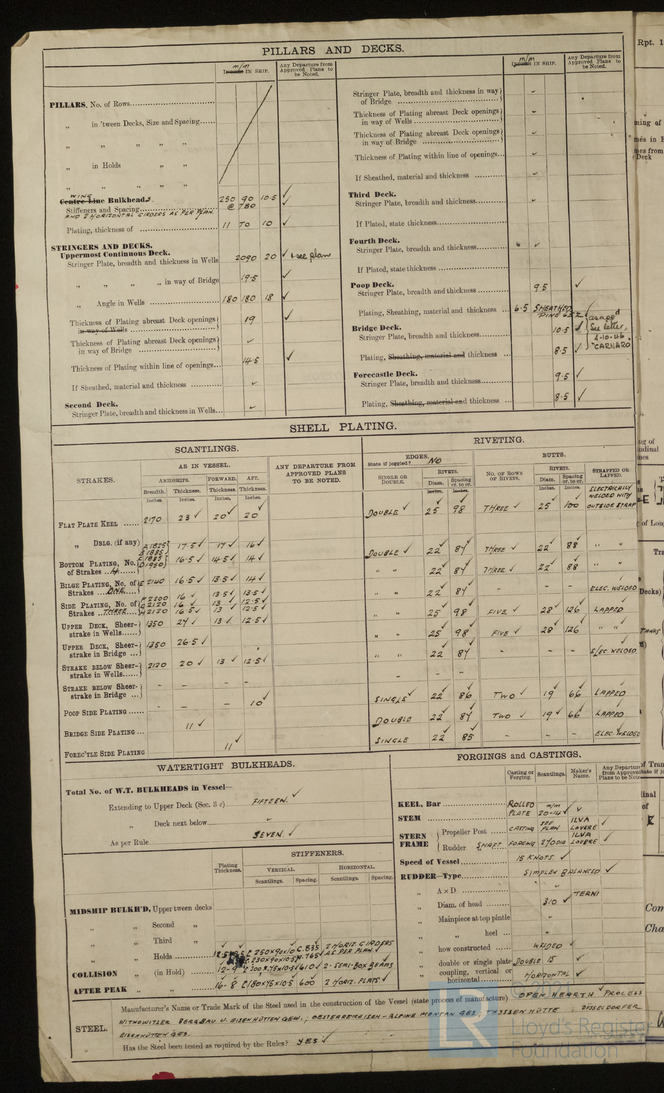 PILLARS AND DECKS.
m/m
Inches IN SHIP.
Any Departure from Approved Plans to be Noted.
PILLARS, No. of Rows
„ in 'tween Decks, Size and Spacing
„ „ „ „
„ in Holds „ „
„ „ „ „
WING
Centre Line Bulkheads.
Stiffeners and Spacing 250 90 10.5 ✓
@ 780
AND 2 HORIZONTAL GIRDERS AS PER PLAN
Plating, thickness of 11 TO 10 ✓
STRINGERS AND DECKS.
Uppermost Continuous Deck.
Stringer Plate, breadth and thickness in Wells 2090 20 ✓ see plan
„ „ „ „ in way of Bridge 19.5 ✓
„ Angle in Wells 180 180 18 ✓
Thickness of Plating abreast Deck openings in way of Wells 19 ✓
Thickness of Plating abreast Deck openings in way of Bridge
Thickness of Plating within line of openings 14.5 ✓
If Sheathed, material and thickness
Second Deck.
Stringer Plate, breadth and thickness in Wells
m/m
Inches IN SHIP.
Any Departure from Approved Plans to be Noted.
Stringer Plate, breadth and thickness in way of Bridge
Thickness of Plating abreast Deck openings in way of Wells
Thickness of Plating abreast Deck openings in way of Bridge
Thickness of Plating within line of openings
If Sheathed, material and thickness
Third Deck.
Stringer Plate, breadth and thickness
If Plated, state thickness
Fourth Deck.
Stringer Plate, breadth and thickness
If Plated, state thickness
Poop Deck.
Stringer Plate, breadth and thickness 9.5 ✓
Plating, Sheathing, material and thickness 6.5 SHEATHED
Bridge Deck.
Stringer Plate, breadth and thickness 10.5 ✓
See letter,
"CARNARO
Plating, Sheathing, material and thickness 8.5 ✓
Forecastle Deck.
Stringer Plate, breadth and thickness 9.5 ✓
Plating, Sheathing, material and thickness 8.5 ✓
SHELL PLATING.
SCANTLINGS.
RIVETING.
STRAKES.
AS IN VESSEL.
AMIDSHIPS.
FORWARD.
AFT.
Breadth. Thickness. Thickness. Thickness.
Inches. Inches. Inches. Inches.
ANY DEPARTURE FROM APPROVED PLANS TO BE NOTED.
EDGES.
State if joggled? NO
SINGLE OR DOUBLE.
RIVETS.
Diam. Spacing cr. to cr.
BUTTS.
NO. OF ROWS OF RIVETS.
RIVETS.
Diam. Spacing cr. to cr.
STRAPPED OR LAPPED.
FLAT PLATE KEEL 2170 23 ✓ 20 ✓ 20 ✓ DOUBLE ✓ 25 98 THREE ✓ 25 100 ELECTRICALLY WELDED WITH OUTSIDE STRAP
„ DBLG. (if any)
BOTTOM PLATING, No. of Strakes 4 A 1825 17.5 ✓ 17 ✓ 16 ✓ DOUBLE ✓ 22 87 THREE ✓ 22 88 „ „
16.5 ✓ 14.5 ✓ 14 ✓ „ „ 22 87 THREE ✓ 22 88 „ „
BILGE PLATING, No. of Strakes ONE E 2140 16.5 ✓ 13.5 ✓ 14 ✓ „ „ 22 87 - - - ELEC. WELDED
SIDE PLATING, No. of Strakes THREE F 2200 16 ✓ 13.5 ✓ 13.5 ✓
G 2120 16 ✓ 13 ✓ 12.5 ✓
H 2120 16.5 ✓ 13 ✓ 12.5 ✓ „ „ 25 98 FIVE ✓ 28 126 LAPPED
UPPER DECK, Sheer-strake in Wells 1350 24 ✓ 13 ✓ 12.5 ✓ „ „ 25 98 FIVE ✓ 28 126 „ „
UPPER DECK, Sheer-strake in Bridge 1350 26.5 ✓ „ „ 22 87 - - - ELEC. WELDED
STRAKE BELOW Sheer-strake in Wells 2120 20 ✓ 13 ✓ 12.5 ✓ - - - - - - -
STRAKE BELOW Sheer-strake in Bridge - - - -
POOP SIDE PLATING 10 ✓ SINGLE ✓ 22 86 TWO ✓ 19 66 LAPPED
BRIDGE SIDE PLATING 11 ✓ DOUBLE 22 87 TWO ✓ 19 66 LAPPED
FOREC'TLE SIDE PLATING 11 ✓ SINGLE 22 85 - - - ELEC WELDED
WATERTIGHT BULKHEADS.
Total No. of W.T. BULKHEADS in Vessel—
Extending to Upper Deck (Sec. 3 c) FIFTEEN. ✓
„ Deck next below
As per Rule SEVEN. ✓
STIFFENERS.
Plating Thickness.
VERTICAL.
HORIZONTAL.
Scantlings. Spacing. Scantlings. Spacing.
MIDSHIP BULKH'D, Upper tween decks
„ „ Second „
„ „ Third „
„ „ Holds 2 HORIZ GIRDERS
AS PER PLAN.
COLLISION „ (in Hold) 12-9 610 ✓ 2-SEMI-BOX BEAMS
AFTER PEAK „ „ 16-8 180x75x10.5 600 2 HORIZ. FLATS ✓
FORGINGS and CASTINGS.
Casting or Forging. Scantlings. Maker's Name. Any Departure from Approved Plans to be Noted
KEEL, Bar
STEM ROLLED PLATE m/m 20-14 ✓
STERN FRAME
Propeller Post CASTING SEE PLAN ILVA LOVERE
Rudder SHAFT FORGING 270 DIA ILVA LOVERE
Speed of Vessel 15 KNOTS ✓
RUDDER—Type SIMPLEX BALANCED ✓
„ A × D
„ Diam. of head 310 ✓ TERNI
„ Mainpiece at top pintle
„ „ heel
„ how constructed WELDED ✓
„ double or single plate DOUBLE 15 ✓
„ coupling, vertical or horizontal HORIZONTAL ✓
STEEL.
Manufacturer's Name or Trade Mark of the Steel used in the construction of the Vessel (state process of manufacture) OPEN HEARTH ✓ PROCESS
WITKOWITZER BERGBAU U. EISENHÜTTEN GEW.; OESTERREICHISCH-ALPINE MONTAN GES; THYSSEN HÜTTE; DÜSSELDORFER
EISENHÜTTEN GES.
Has the Steel been tested as required by the Rules? YES ✓
© 2021
Lloyd's Register
Foundation
LR
Rpt. 1